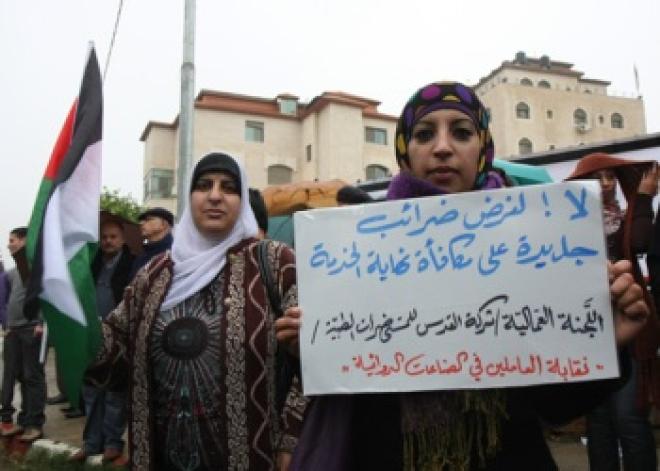 لا ! لفرض ضرائب
جديدة على مكافأة نهاية الخدمة
اللجنة العمالية / شركة القدس للمستحضرات الطبية /
" نقابة العاملين في الصناعات الدوائية "